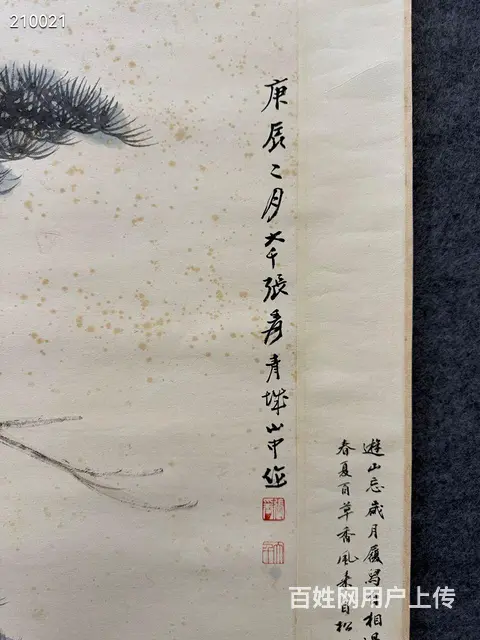 210021
庚辰二月大千張爰青城山中作
遊山忘歲月履
相
春夏百草香風來自松
百姓网用户上传